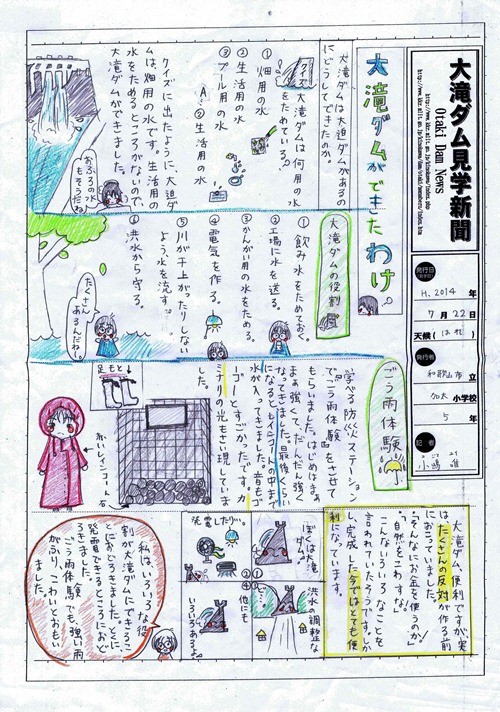 大滝ダム見学新聞
Otaki Dam News
発行日
H.2014年
7月22日
天候(はれ)
発行者
和歌山市立
加太小学校
5年
記者
大滝ダムができたわけ
大滝ダムは大迫ダムがあるの
にどうしてできたのか。
クイズ
大滝ダムは何用の水
をためている?
①畑用の水
②生活用の水
③プール用の水
A.②生活用の水
クイズに出たように、大迫ダ
ムは、畑用の水です。生活用の
水をためるところがないので、
大滝ダムができました。
おふろの水
もそうだね。
大滝ダムの役割
①飲み水をためておく。
②工場に水を送る。
③かんがい用の水をためる。
④電気を作る。
⑤川が干上がったりしない
よう水を流す。
⑥洪水から守る。
たくさん
あるんだね。
ごう雨体験
学べる防災ステーション
で、ごう雨体験をさせて
もらいました。はじめはまぁ
まぁ強くて、だんだん強く
なってきました。最後くらい
になるとレインコートの中まで
水が入ってきました。音もゴ
ゴーとすごかったです。カ
ミナリの光もさい現していま
した。
足もと
赤いレインコート
石
大滝ダム、便利ですが、実
はたくさんの反対が作る前
におこっていました。
"そんなにお金を使うのか!"
"自然をこわすな!"
こんないろいろなことを
言われていたそうです。しか
し、完成した今ではとても便
利になっています。
①
ぼくは大滝
ダム。
②
洪水の調整な
ど
③
発電したり…。
④
他にも
いろいろあるよ。
私は、いろいろな役
割が大滝ダムにできるこ
とにおどろきました。とくに、
発電できるところにおど
ろきました。
ごう雨体験でも、強い雨
がふり、こわいとおもい
ました。